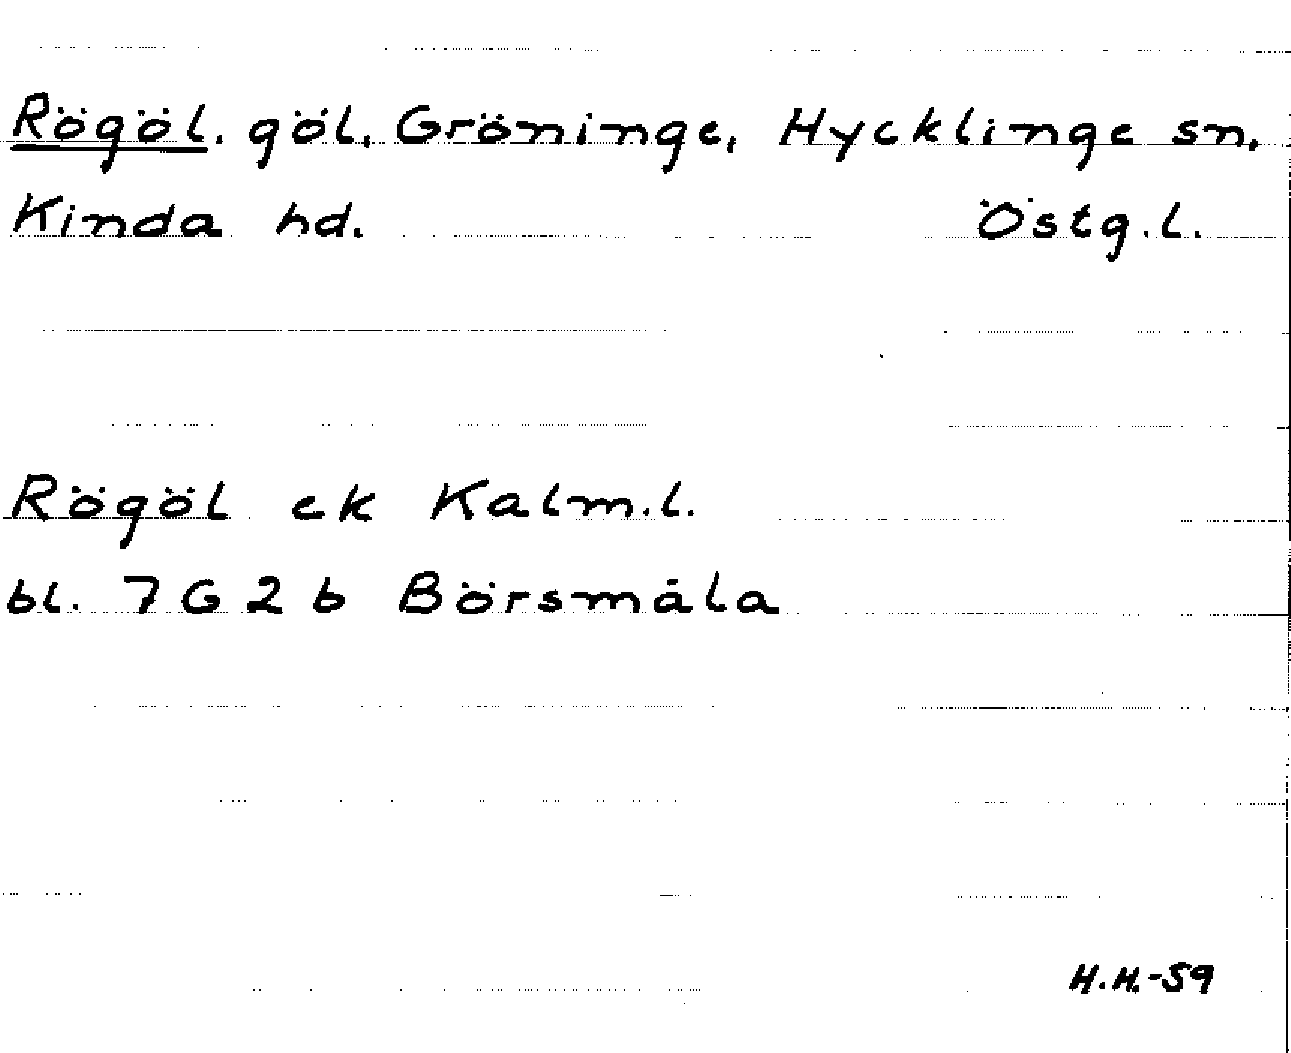 Rögöl. göl, Gröninge, Hycklinge sn.
Kinda hd. Östg.l.
Rögöl ek Kalm.l.
bl. 7G2b Börsmåla
H.H.-59